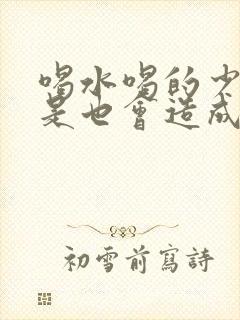 喝水喝的少
是也會造成
初雪前寫詩